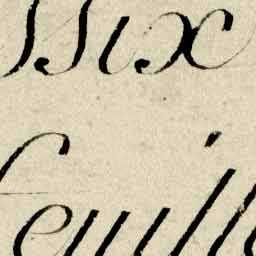 six
feuill